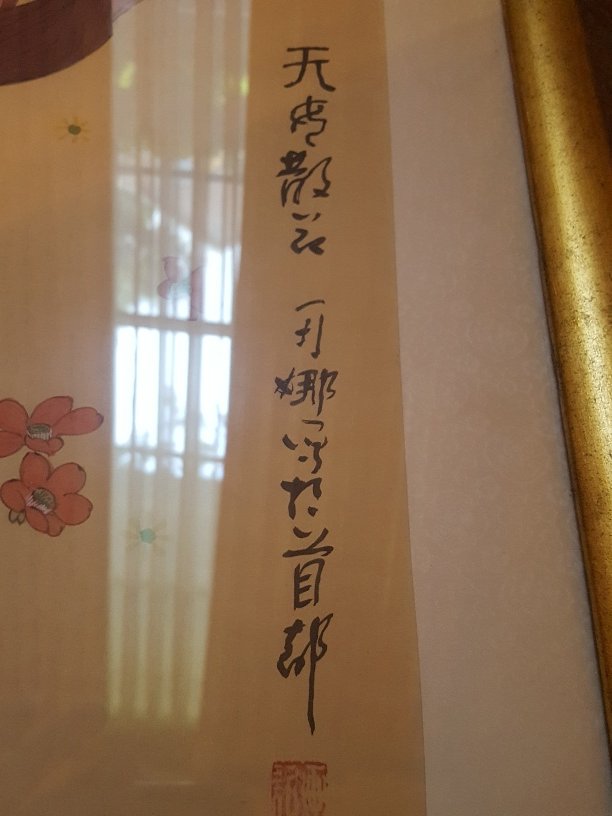 天女散花 丽娜写於首都